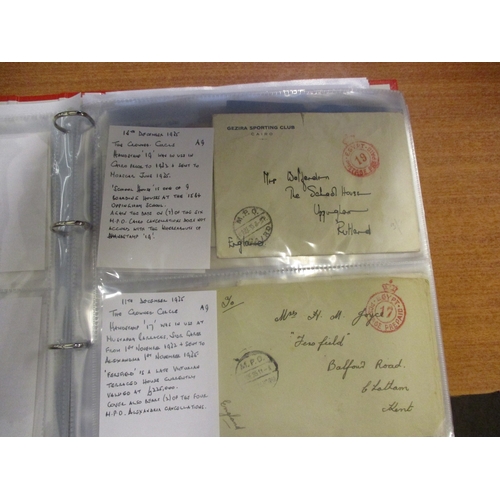 16TH DECEMBER 1935
THE CROWNED CIRCLE A9
HANDSTAMP '19' WAS IN USE IN
CAIRO PRIOR TO 1932 & SENT TO
'SCHOOL HOUSE' IS ONE OF
BOARDING HOUSES AT THE 1584
UPPINGHAM SCHOOL.
AGAIN THE DATE ON
M.P.O. CAIRO CANCELLATION DOES NOT
ACCORD WITH THE
HANDSTAMP '19'.
GEZIRA SPORTING CLUB
CAIRO
EGYPT
19
Mrs
The School House
Uppingham
Rutland
England
M.P.O.
CAIRO
11TH DECEMBER 1935
THE CROWNED CIRCLE A9
HANDSTAMP '17' WAS IN USE AT
MUSTAPHA BARRACKS, SIDI GABER
FROM 1ST NOVEMBER 1932 & SENT TO
ALEXANDRIA 1ST NOVEMBER 1935
'FERNFIELD' IS A LATE VICTORIAN
TERRACED HOUSE CURRENTLY
VALUED AT £225,000.
COVER ALSO BEARS (2) OF THE FOUR
M.P.O. ALEXANDRIA CANCELLATIONS.
EGYPT
17
Miss H. M. Joyce
"Fernfield"
Balford Road.
Chatham
Kent
M.P.O.
England